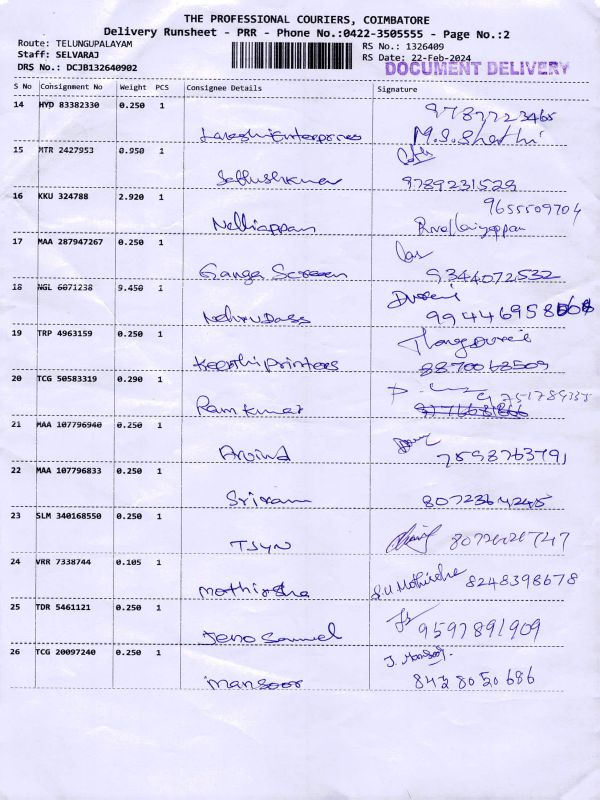 THE PROFESSIONAL COURIERS, COIMBATORE
Delivery Runsheet - PRR - Phone No.:0422-3505555 - Page No.:2
Route: TELUNGUPALAYAM RS No.: 1326409
Staff: SELVARAJ RS Date: 22-Feb-2024
DRS No.: DCJB132640902 DOCUMENT DELIVERY
S No Consignment No Weight PCS Consignee Details Signature
14 HYD 83382330 0.250 1
Enterprises M.S.Shathi
15 MTR 2427953 0.950 1
Sathushkumar 9789231529
16 KKU 324788 2.920 1 9655509704
Nelliappan
17 MAA 287947267 0.250 1
Ganga Screen 9344072532
18 NGL 6071238 9.450 1
Nehru Dass
19 TRP 4963159 0.250 1
Keerthi Printers 8870063509
20 TCG 50583319 0.290 1
Ram kumar
21 MAA 107796940 0.250 1
Arvind 7598763791
22 MAA 107796833 0.250 1
Sriram 8072364245
23 SLM 340168550 0.250 1
TJYN
24 VRR 7338744 0.105 1
Mothirsha 8248398678
25 TDR 5461121 0.250 1
Jeno Samuel 9597891909
26 TCG 20097240 0.250 1 J. Mansoor
Mansoor 8428050686